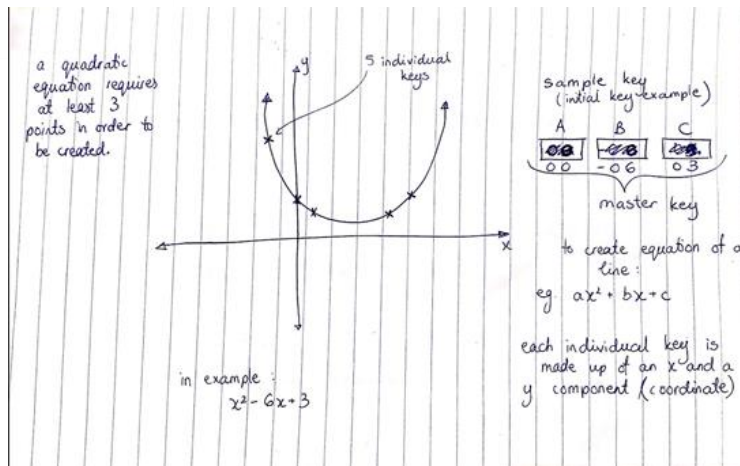 a quadratic
equation requires
at least 3
points in order to
be created.
y
5 individual
keys
x
in example :
x² - 6x + 3
sample key
(initial key example)
A B C
00 -06 03
master key
to create equation of a
line :
eg. ax² + bx + c
each individual key is
made up of an x and a
y component (coordinate)